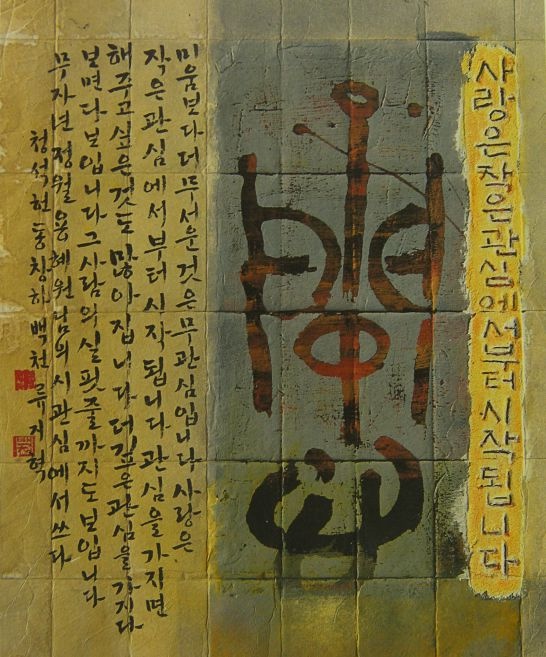 사랑은작은관심에서부터시작됩니다
關心
미움보다더무서운것은무관심입니다사랑은
작은관심에서부터시작됩니다관심을가지면
해주고싶은것도많아집니다더깊은관심을가지다
보면다보입니다그사람의실핏줄까지도보입니다
무자년정월용혜원님의시관심에서쓰다
청석헌동창하백천류지혁